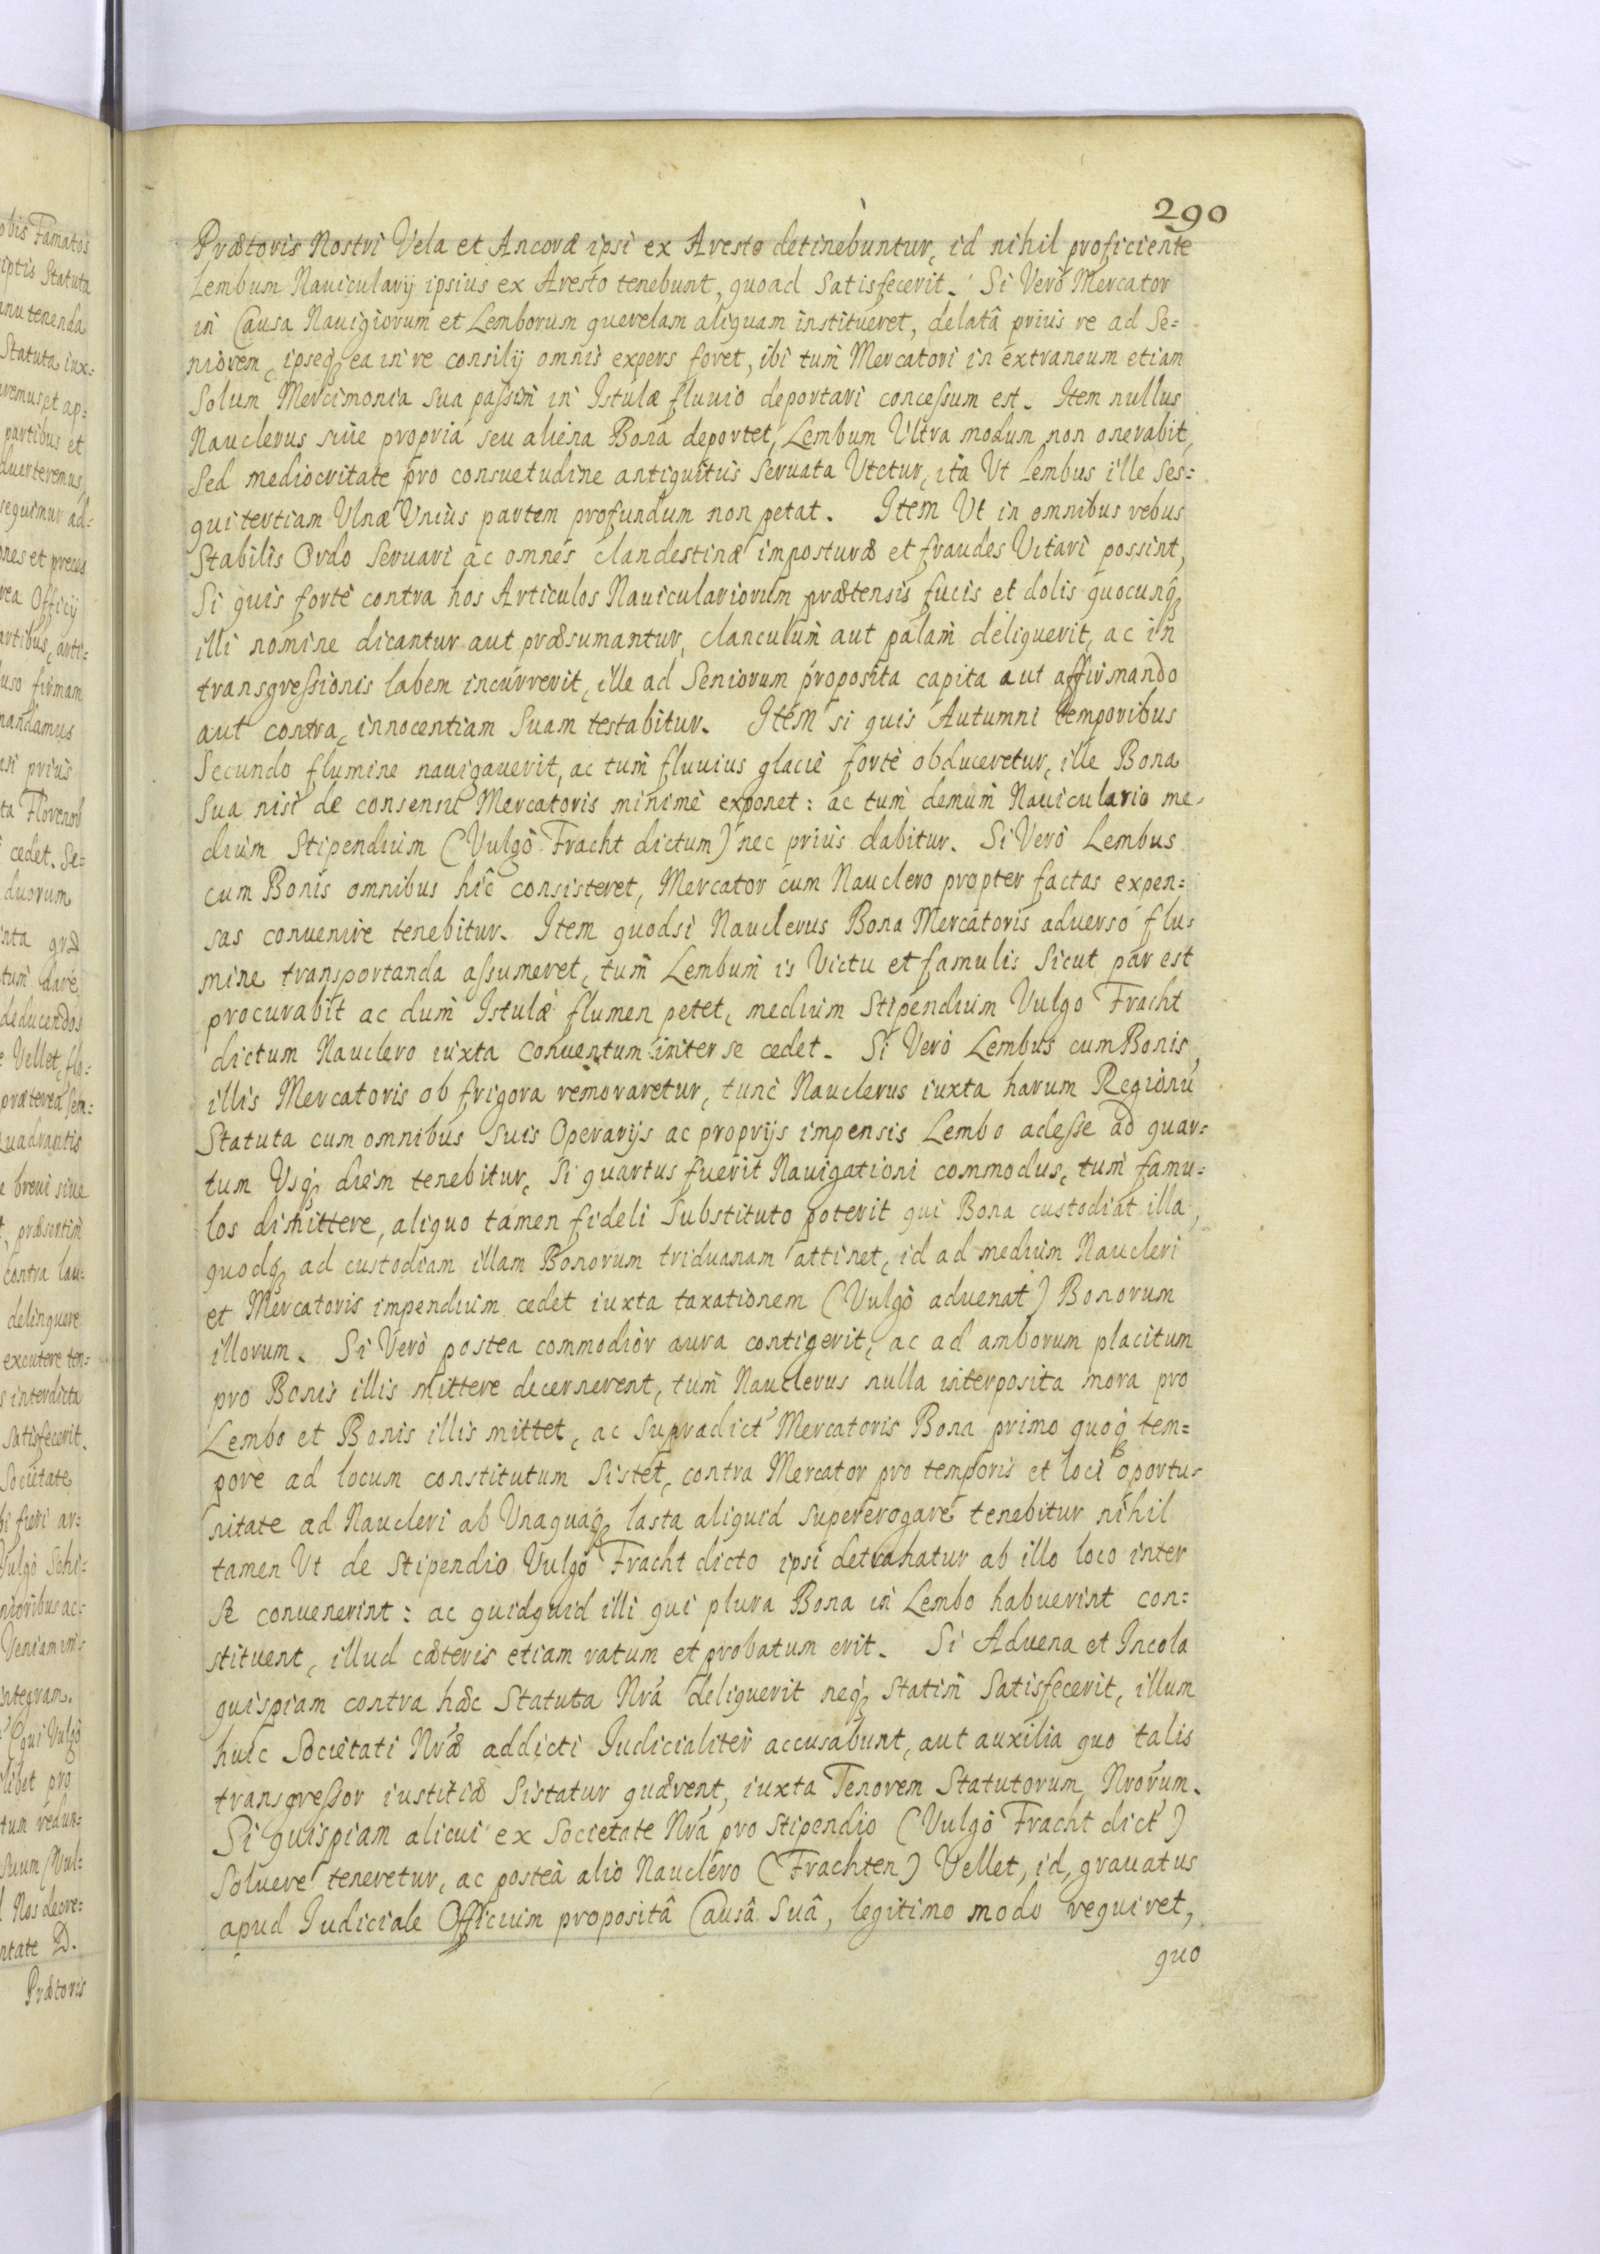 290
Prætoris Nostri Vela et Ancoræ ipsi ex Aresto detinebuntur, id nihil proficiente
Lembum Nauicularij ipsius ex Aresto tenebunt, quoad Satisfecerit. Si Verò Mercator
in Causa Nauigiorum et Lemborum querelam aliquam institueret, delatâ prius re ad Se=
niorem, ipseq, ea in re consilij omnis expers foret, ibi tum Mercatori in extraneum etiam
Solum Mercimonia Sua passim in Istulæ fluuio deportari concessum est. Item nullus
Nauclerus siue propria seu aliena Bona deportet, Lembum Ultra modum non onerabit,
Sed mediocritate pro consuetudine antiquitus Seruata Utetur, ita Ut Lembus ille Ses=
quitertiam Ulnæ Unius partem profundum non petat. Item Ut in omnibus rebus
Stabilis Ordo Seruari ac omnes clandestinæ imposturæ et fraudes Vitari possint,
Si quis fortè contra hos Articulos Nauiculariorum prætensis fucis et dolis quocunq,
illi nomine dicantur aut præsumantur, clanculum aut palam deliquerit, ac in
transgressionis labem incurrerit, ille ad Seniorum proposita capita aut affirmando
aut contra, innocentiam Suam testabitur. Item si quis Autumni temporibus
Secundo flumine nauigauerit, ac tum fluuius glacie fortè obduceretur, ille Bona
Sua nisi de consensu Mercatoris minimè exponet: ac tum demum Nauiculario me=
dium Stipendium (Vulgò Fracht dictum) nec prius dabitur. Si Verò Lembus
cum Bonis omnibus hîc consisteret, Mercator cum Nauclero propter factas expen=
sas conuenire tenebitur. Item quodsi Nauclerus Bona Mercatoris aduerso flu=
mine transportanda assumeret, tum Lembum is Victu et famulis Sicut par est
procurabit ac dum Istulæ flumen petet, medium Stipendium Vulgo Fracht
dictum Nauclero iuxta Conuentum inter se cedet. Si Verò Lembus cum Bonis
illis Mercatoris ob frigora remoraretur, tunc Nauclerus iuxta harum Regionú
Statuta cum omnibus Suis Operarijs ac proprijs impensis Lembo adesse ad quar=
tum Usq, diem tenebitur, Si quartus fuerit Nauigationi commodus, tum famu=
los dimittere, aliquo tamen fideli Substituto poterit qui Bona custodiat illa,
quodq, ad custodiam illam Bonorum triduanam attinet, id ad medium Naucleri
et Mercatoris impendium cedet iuxta taxationem (Vulgò aduenat) Bonorum
illorum. Si Verò postea commodior aura contigerit, ac ad amborum placitum
pro Bonis illis mittere decernerent, tum Nauclerus nulla interposita mora pro
Lembo et Bonis illis mittet, ac Supradict' Mercatoris Bona primo quoq, tem=
pore ad locum constitutum Sistet, contra Mercator pro temporis et loci oportu=
nitate ad Naucleri ab Unaquaq, lasta aliquid supererogare tenebitur nihil
tamen Ut de Stipendio Vulgò Fracht dicto ipsi detrahatur ab illo loco inter
Se conuenerint: ac quidquid illi qui plura Bona in Lembo habuerint con=
stituent, illud cæteris etiam ratum et probatum erit. Si Aduena et Incola
quispiam contra hæc Statuta Nrá deliquerit neq, Statim Satisfecerit, illum
huic Societati Nræ addicti Iudicialiter accusabunt, aut auxilia quo talis
transgressor iustitiæ Sistatur quærent, iuxta Tenorem Statutorum Nrorum.
Si quispiam alicui ex Societate Nrá pro Stipendio (Vulgò Fracht dict')
Soluere teneretur, ac posteà alio Nauclero (Frachten) Vellet, id, grauatus
apud Iudiciale Officium propositâ Causâ Suâ, legitimo modo requiret,
quo